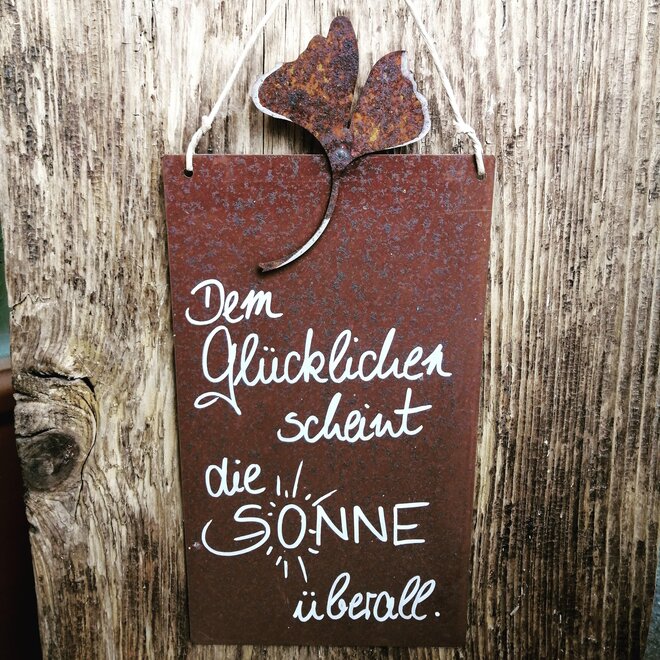 Dem
Glücklichen
scheint
die
SONNE
überall.